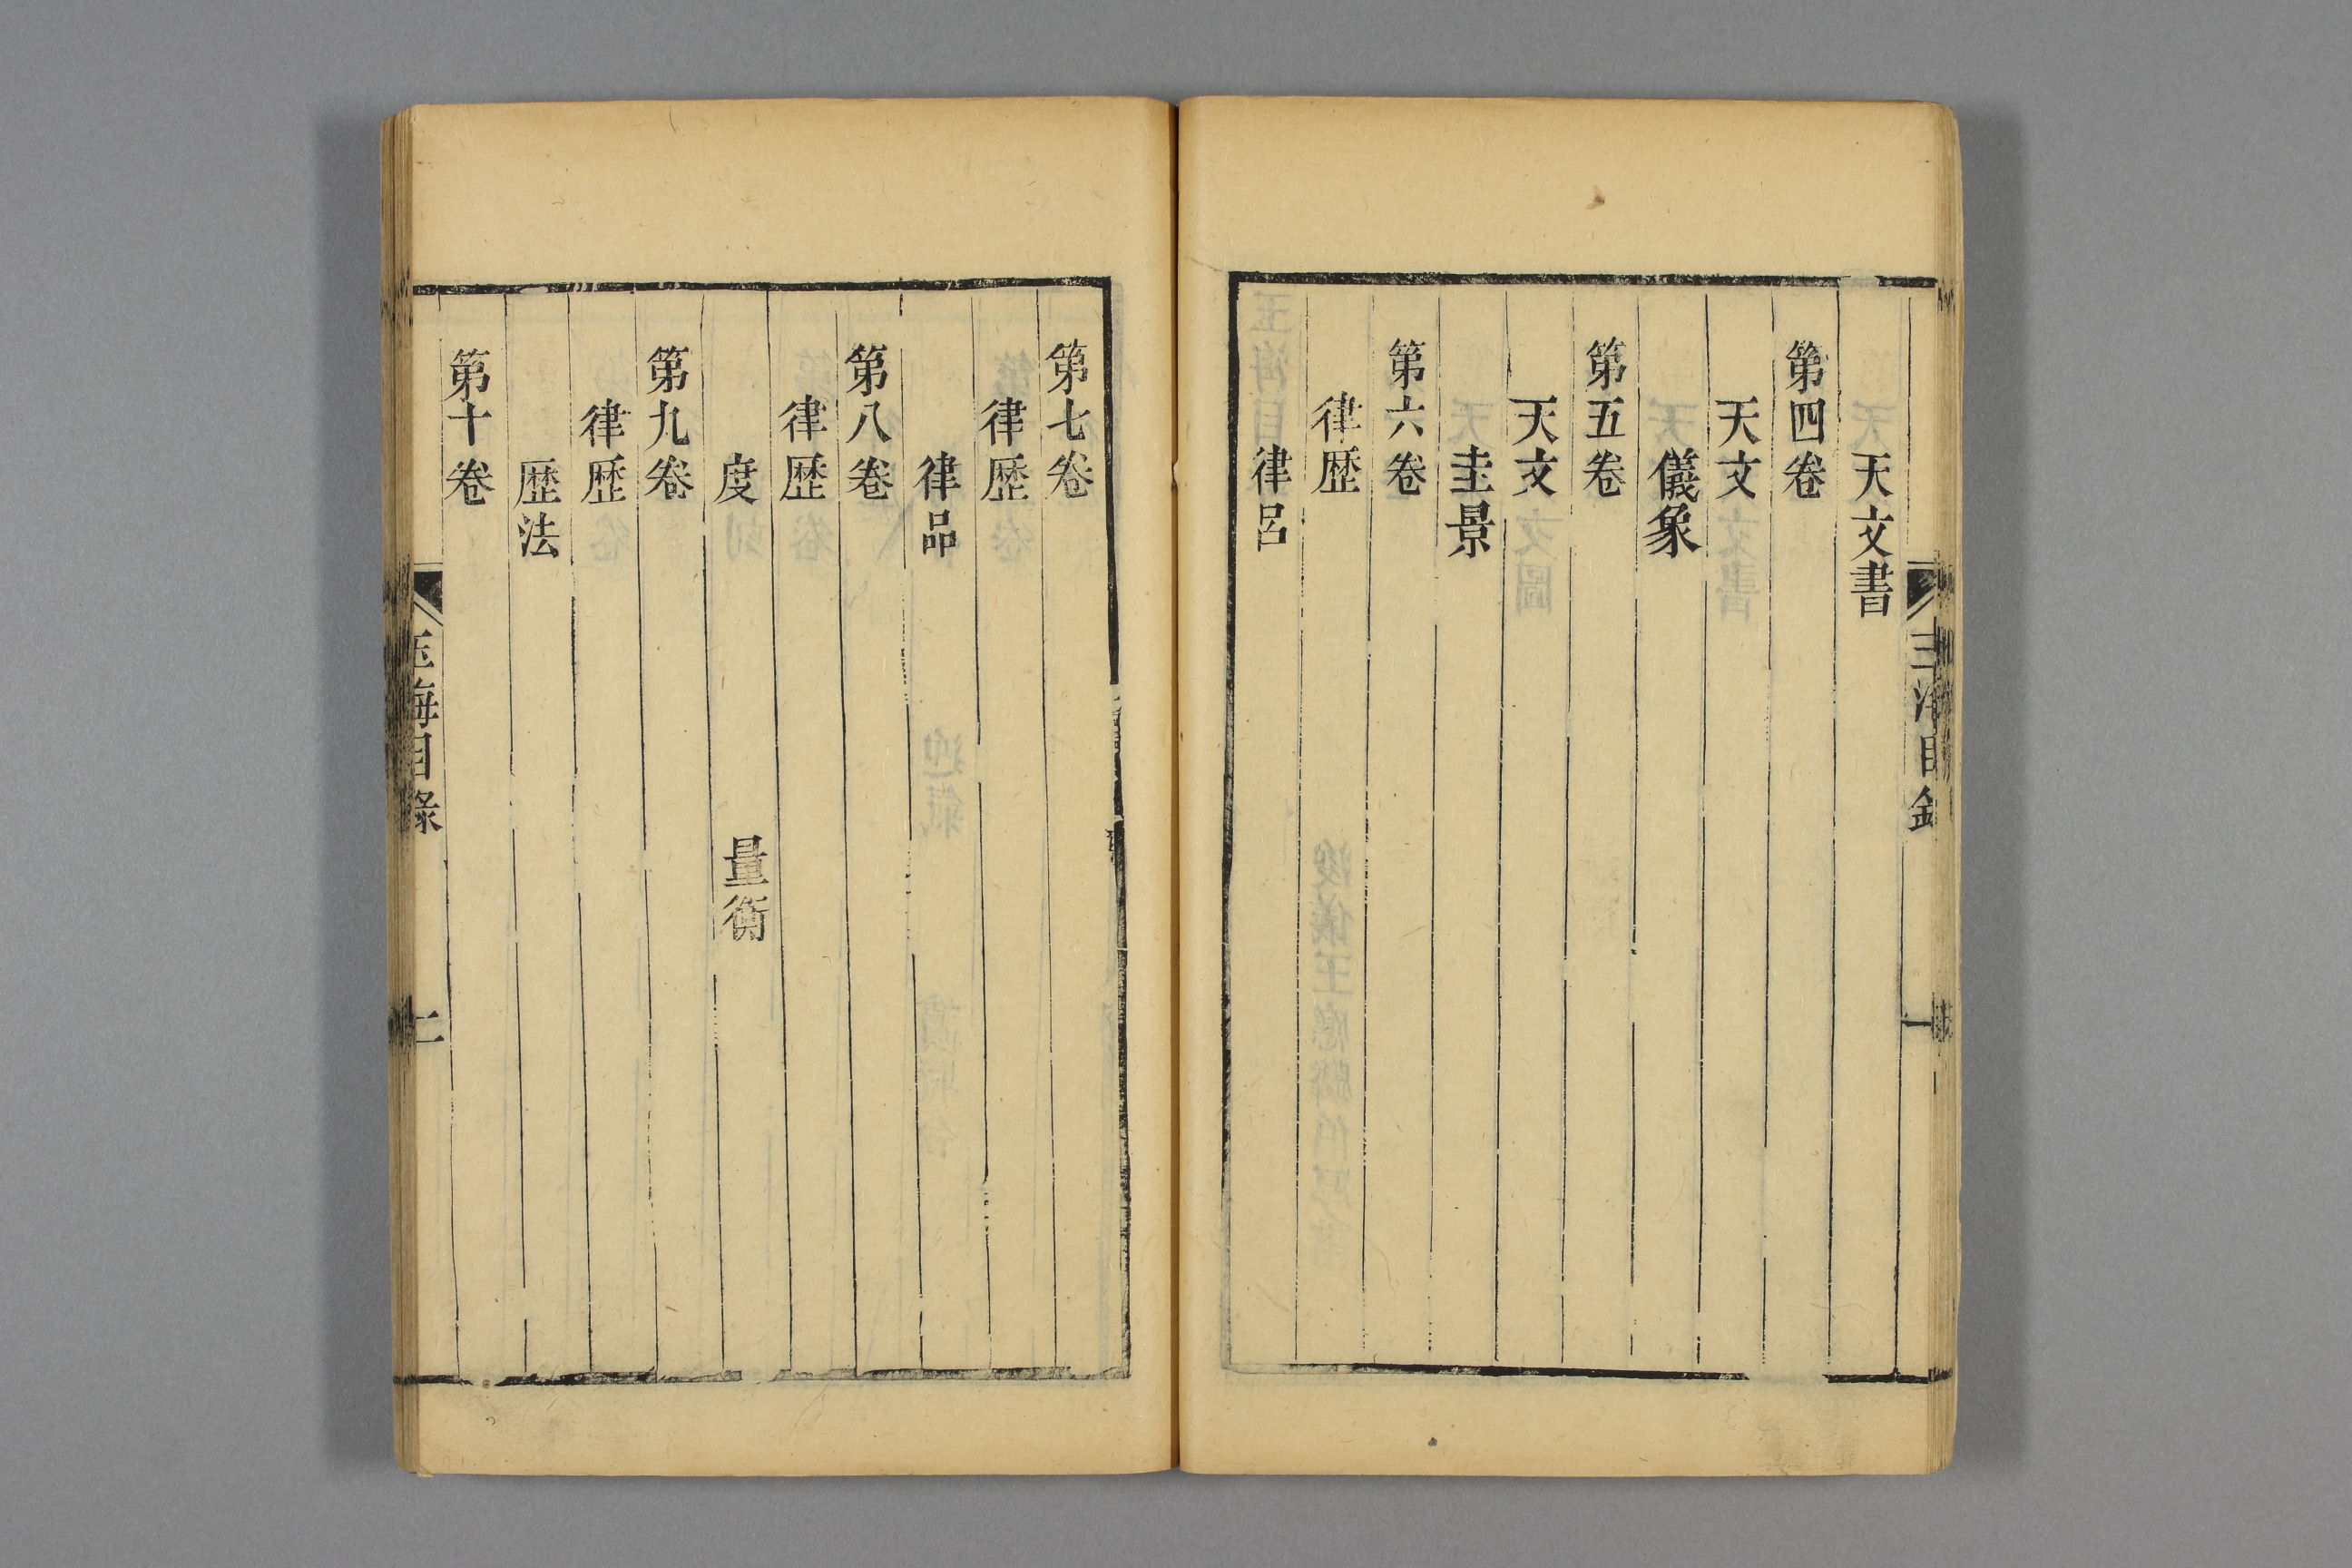 天文書
第四卷
天文
儀象
第五卷
天文
圭景
第六卷
律歴
律呂
第七卷
律歴
律品
第八卷
律歴
度 量衡
第九卷
律歴
歴法
第十卷
玉海目錄 二